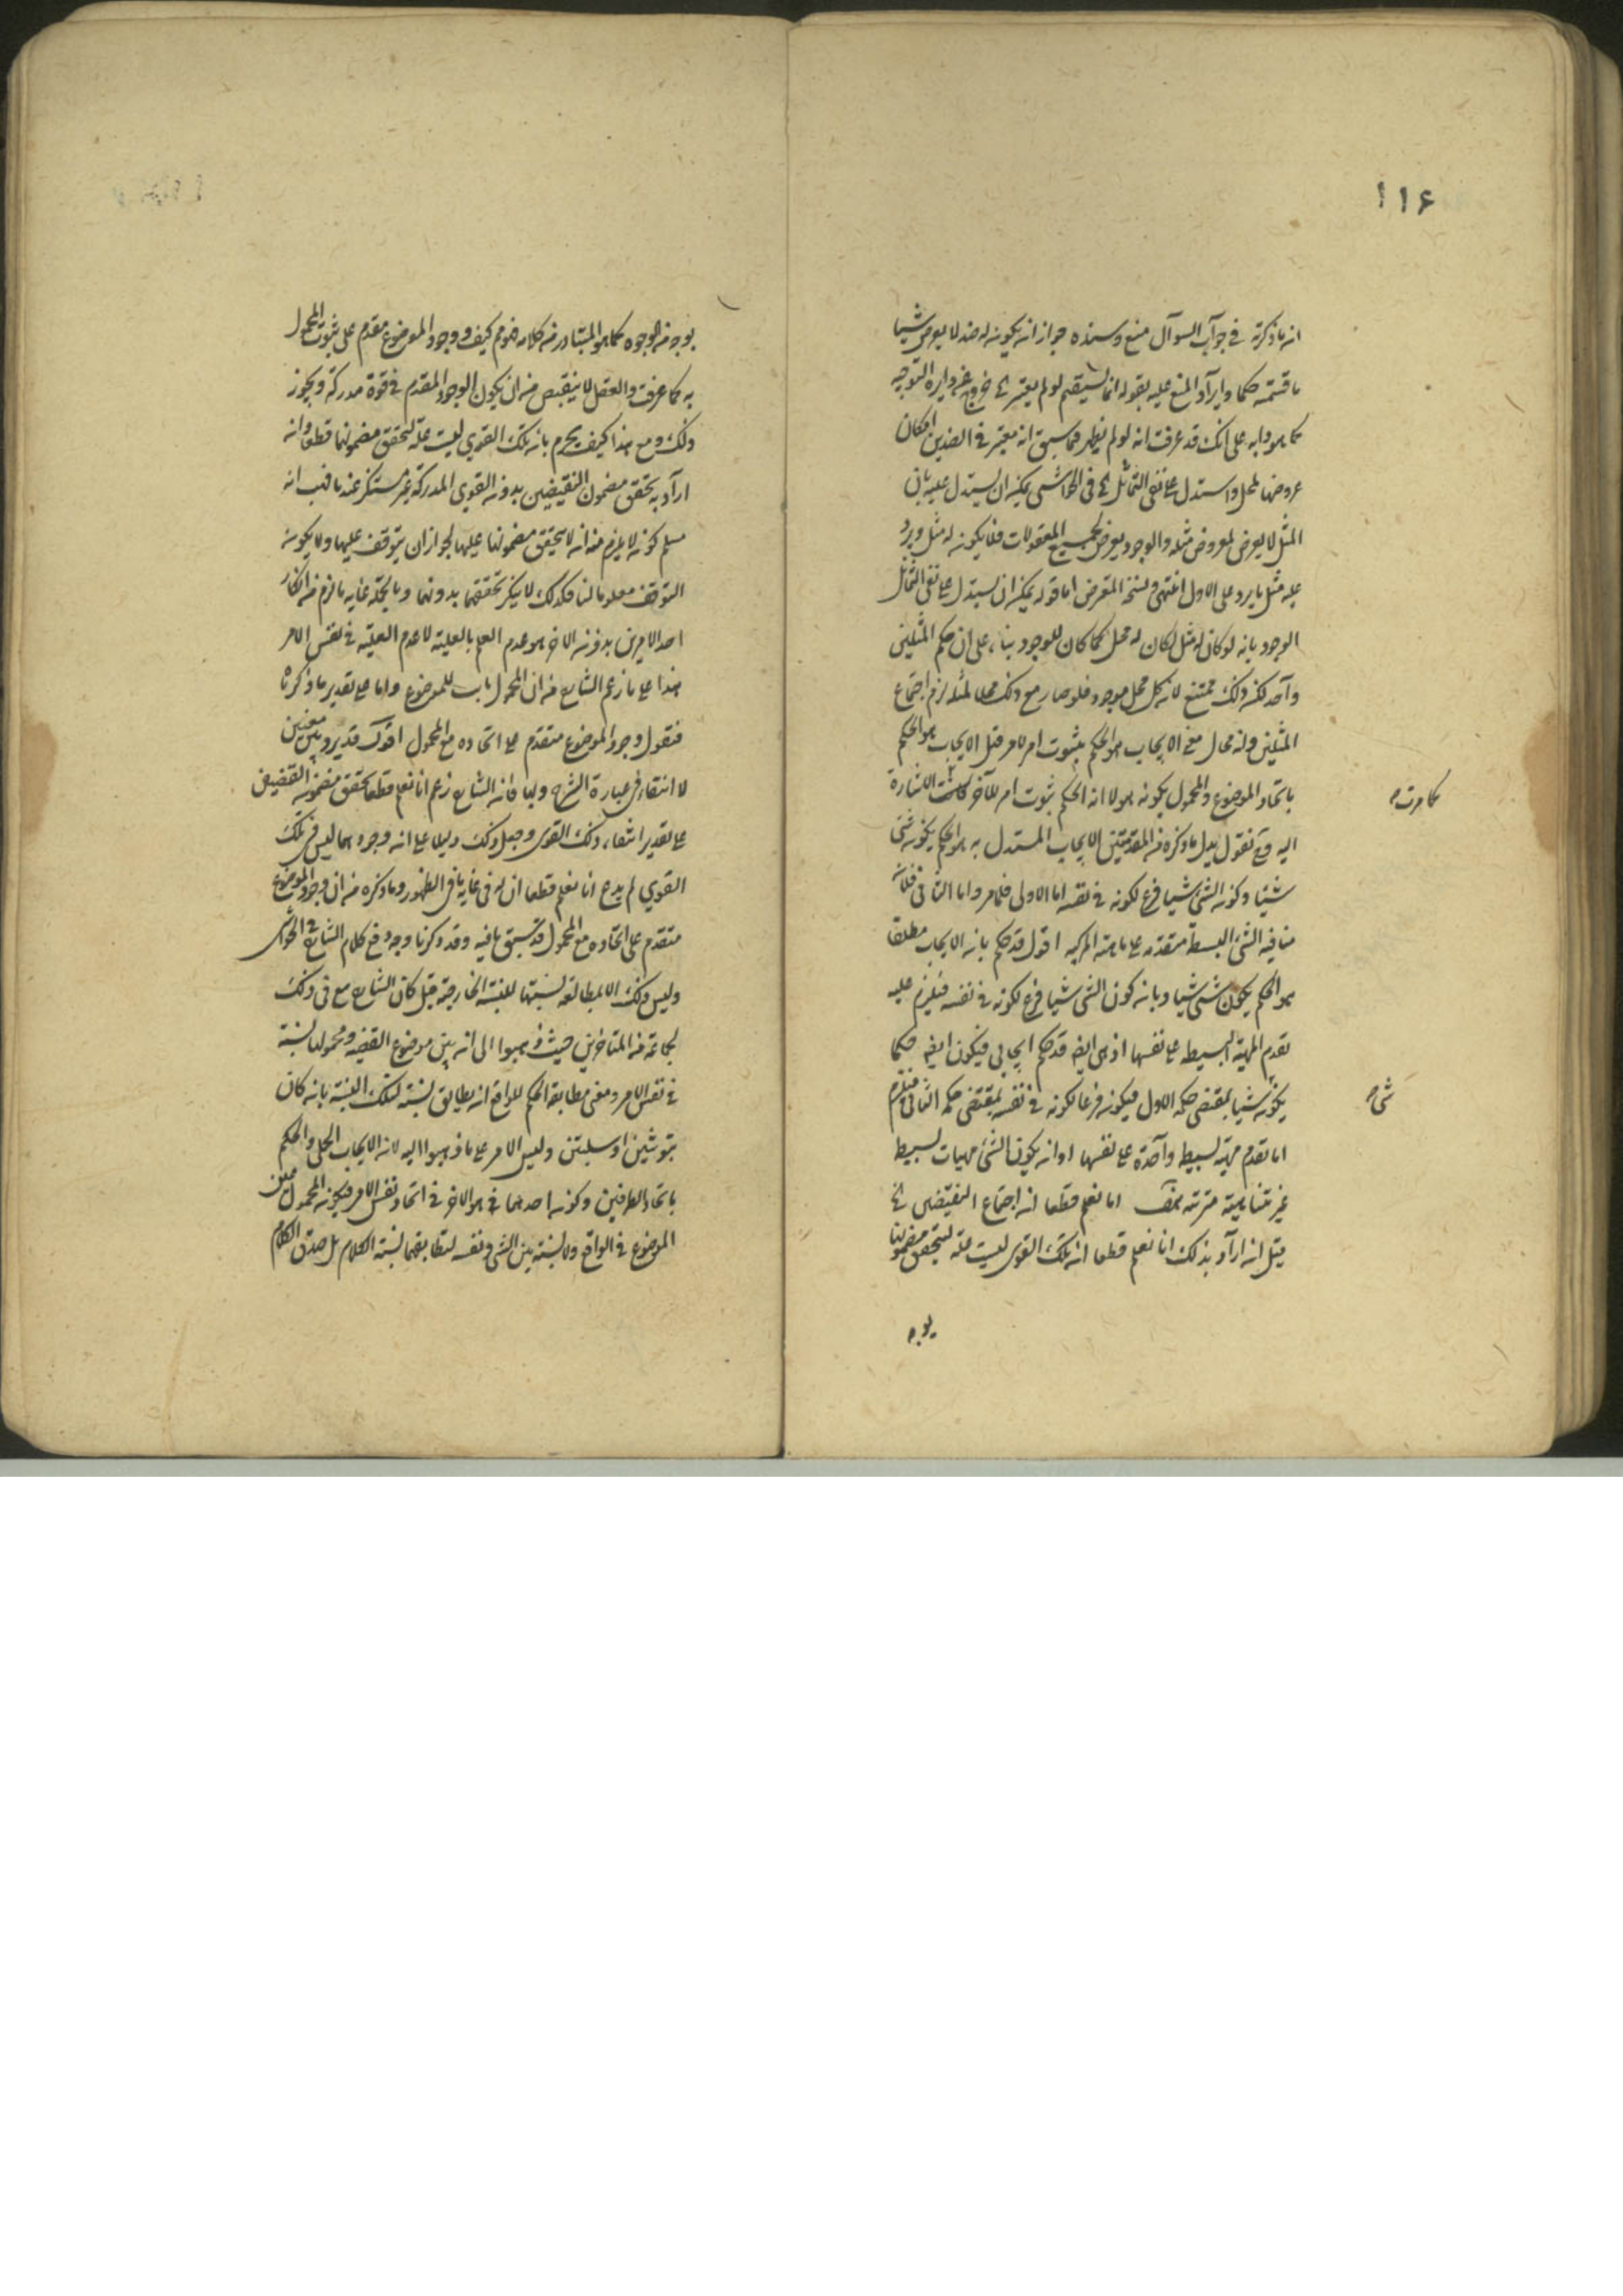 ١١٦
ان ما ذكرته في جواب السوآل منع وسنده جواز ان يكون له ضد لا يعرض شيئا
ما قسمته حكما وايرآد المنع عليه بقوله انما يستقيم لو لم يعتبر الخ خروج عن دايرة التوجيه
كما هو دابه على انك قد عرفت انه لو لم يظهر فما سبق انه معتبر في الضدين امكان
عروضها لمحل واستدل على نفى التماثل الخ في الحواشى يمكن ان يستدل عليه بان
المثل لا يعرض لمعروض مثله والوجود يعرض لجميع المعقولات فلا يكون له مثل ويرد
عليه مثل ما يرد على الاول انتهى ولنتخذ المعترض اما قوله يمكن ان يستدل على نفى التماثل
الوجود بانه لو كان له مثل لكان له محل كما كان للوجود بناء على ان حكم المثلين
واحد لكن ذلك ممتنع لان كل محل موجود فلو صار مع ذلك محلا لمثله لزم اجتماع
المثلين وانه محال معنى الايجاب هو الحكم بثبوت امر لامر قيل الايجاب هو الحكم
باتحاد الموضوع والمحمول يكون هو لا ان الحكم بثبوت امر لآخر كما مرت الاشارة
كما مرت م
اليه وح نقول بدل ما ذكره من المقدمتين الايجاب المستدل به هو الحكم بكون شئ
شيئا وكون الشئ شيئا فرع لكونه في نفسه اما الاولى فلما مر واما الثانى فلان
منافيه الشئ البسيطة متقدمه على ماهيته المركبه اقول قد حكم بان الايجاب مطلقا
هو الحكم بكون شئ شيئا وبان كون الشئ شيئا فرع لكونه في نفسه فيلزم عليه
تقدم المهية البسيطه على نفسها اذ هى ايضا قد حكم ايجابى فيكون ايضا حكما
بكون شيئا بمقتضى حكمه الاول فيكون فرعا لكونه في نفسه بمقتضى حكمه الثانى فيلزم
شئ م
اما تقدم مهية بسيطه واحدة على نفسها او ان يكون الشئ مهيات بسيطه
غير متناهية مترتبه هف اما نعلم قطعا ان اجتماع النقيضين الخ
قيل ان ارآد بذلك انا نعلم قطعا ان تلك القوى ليست علة لتحقق مضمونها
بوجه
بوجه من الوجوه كما هو المتبادر من كلامه فهو م كيف ووجود الموضوع مقدم على ثبوت المحمول
به كما عرفت والعقل لا ينقبض من ان يكون الوجود المقدم في قوة مدركة ويجوز
ذلك ومع هذا كيف يجزم بان تلك القوى ليست علة لتحقق مضمونها قطعا وان
ارآد به تحقق مضمون النقيضين بدون القوى المدركة غير مستنكر عندنا فنب انه
مسلم كونه لا يلزم منه انه لا يتحقق مضمونها عليها لجواز ان يتوقف عليها ولا يكون
التوقف معلوما لنا فكذلك لا ينكر تحققهما بدونهما وبالجملة غايه ما لزم من انكار
احد الامرين بدون الاخر هو عدم العلم بالعلية لا عدم العلية في نفس الامر
هذا على ما زعم الشارح من ان المحمول ثابت للموضوع واما على تقدير ما ذكرنا
فنقول وجود الموضوع متقدم على اتحاده مع المحمول اقول قد يرد بين معنيين
لا انتقاء في عبارة الشرح ولها فان الشارح زعم انا نعلم قطعا تحقق مضمون النقيضين
على تقدير انتفاء ذلك القوى وجعل ذلك دليلا على انه وجود هما ليس في تلك
القوى لم يدع انا نعلم قطعا ان له في غاية في الظهور وما ذكره من ان وجود الموضوع
متقدم على اتحاده مع المحمول قد سبق ما فيه وقد ذكرنا وجه دفع كلام الشارح في الحواشى
وليس ذلك الا بمطابقة نسبتها للنسبة الخارجية قيل كان الشارح مع في ذلك
لجماعة من المتاخرين حيث ذهبوا الى ان بين موضوع القضيه ومحمولها نسبة
في نفس الامر ومعنى مطابقة الحكم للواقع ان يطابق نسبته لتلك النسبة بان كان
ثبوتيتين او سلبيتين وليس الامر على ما ذهبوا اليه لان الايجاب الحلى والحكم
باتحاد الطرفين وكون احدهما في هو الاخر في اتحاد نفس الامر فيكون المحمول عين
الموضوع في الواقع ولا نسبة بين الشئ ونفسه لتطابقهما نسبة الكلام بل صدق الكلام